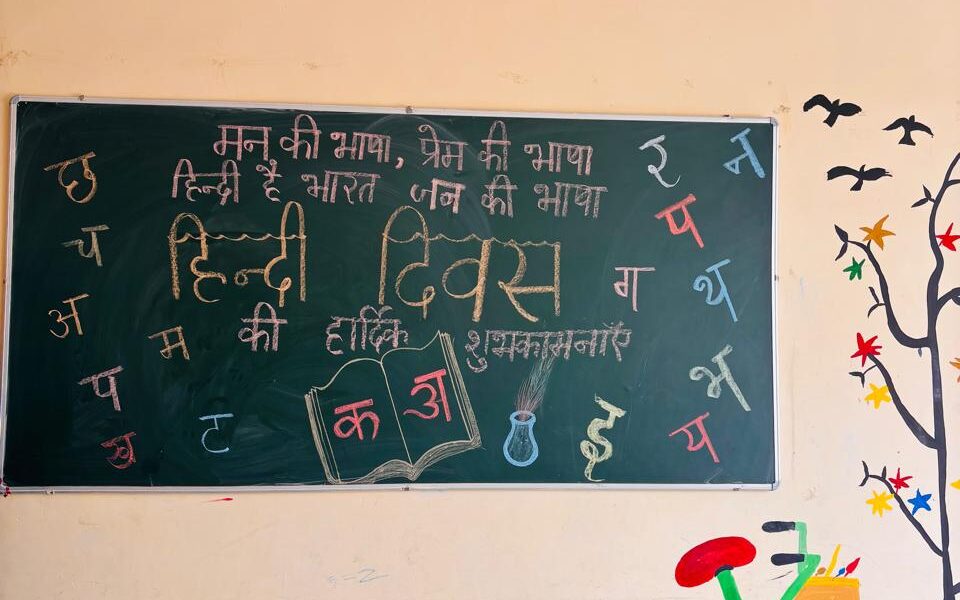 मन की भाषा, प्रेम की भाषा
हिन्दी है भारत जन की भाषा
हिन्दी दिवस
की हार्दिक शुभकामनाएँ
छ
च
अ
म
प
ख
ट
क अ
र
न
प
ग
थ
भ
इ
य